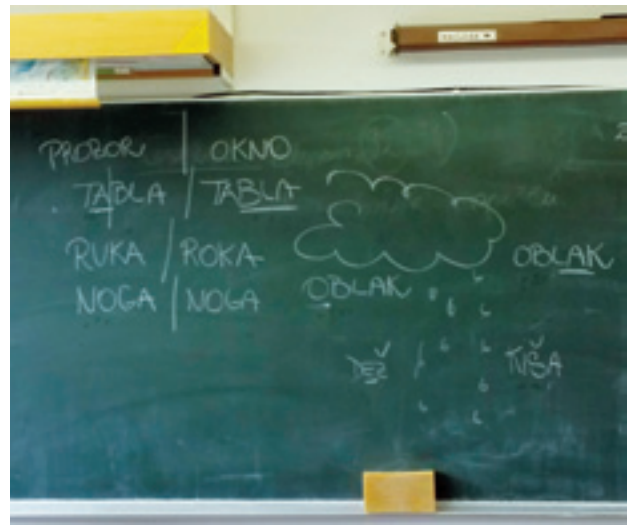 PROZOR | OKNO
TABLA / TABLA
RUKA / ROKA
NOGA / NOGA
OBLAK
OBLAK
DEŽ
KIŠA